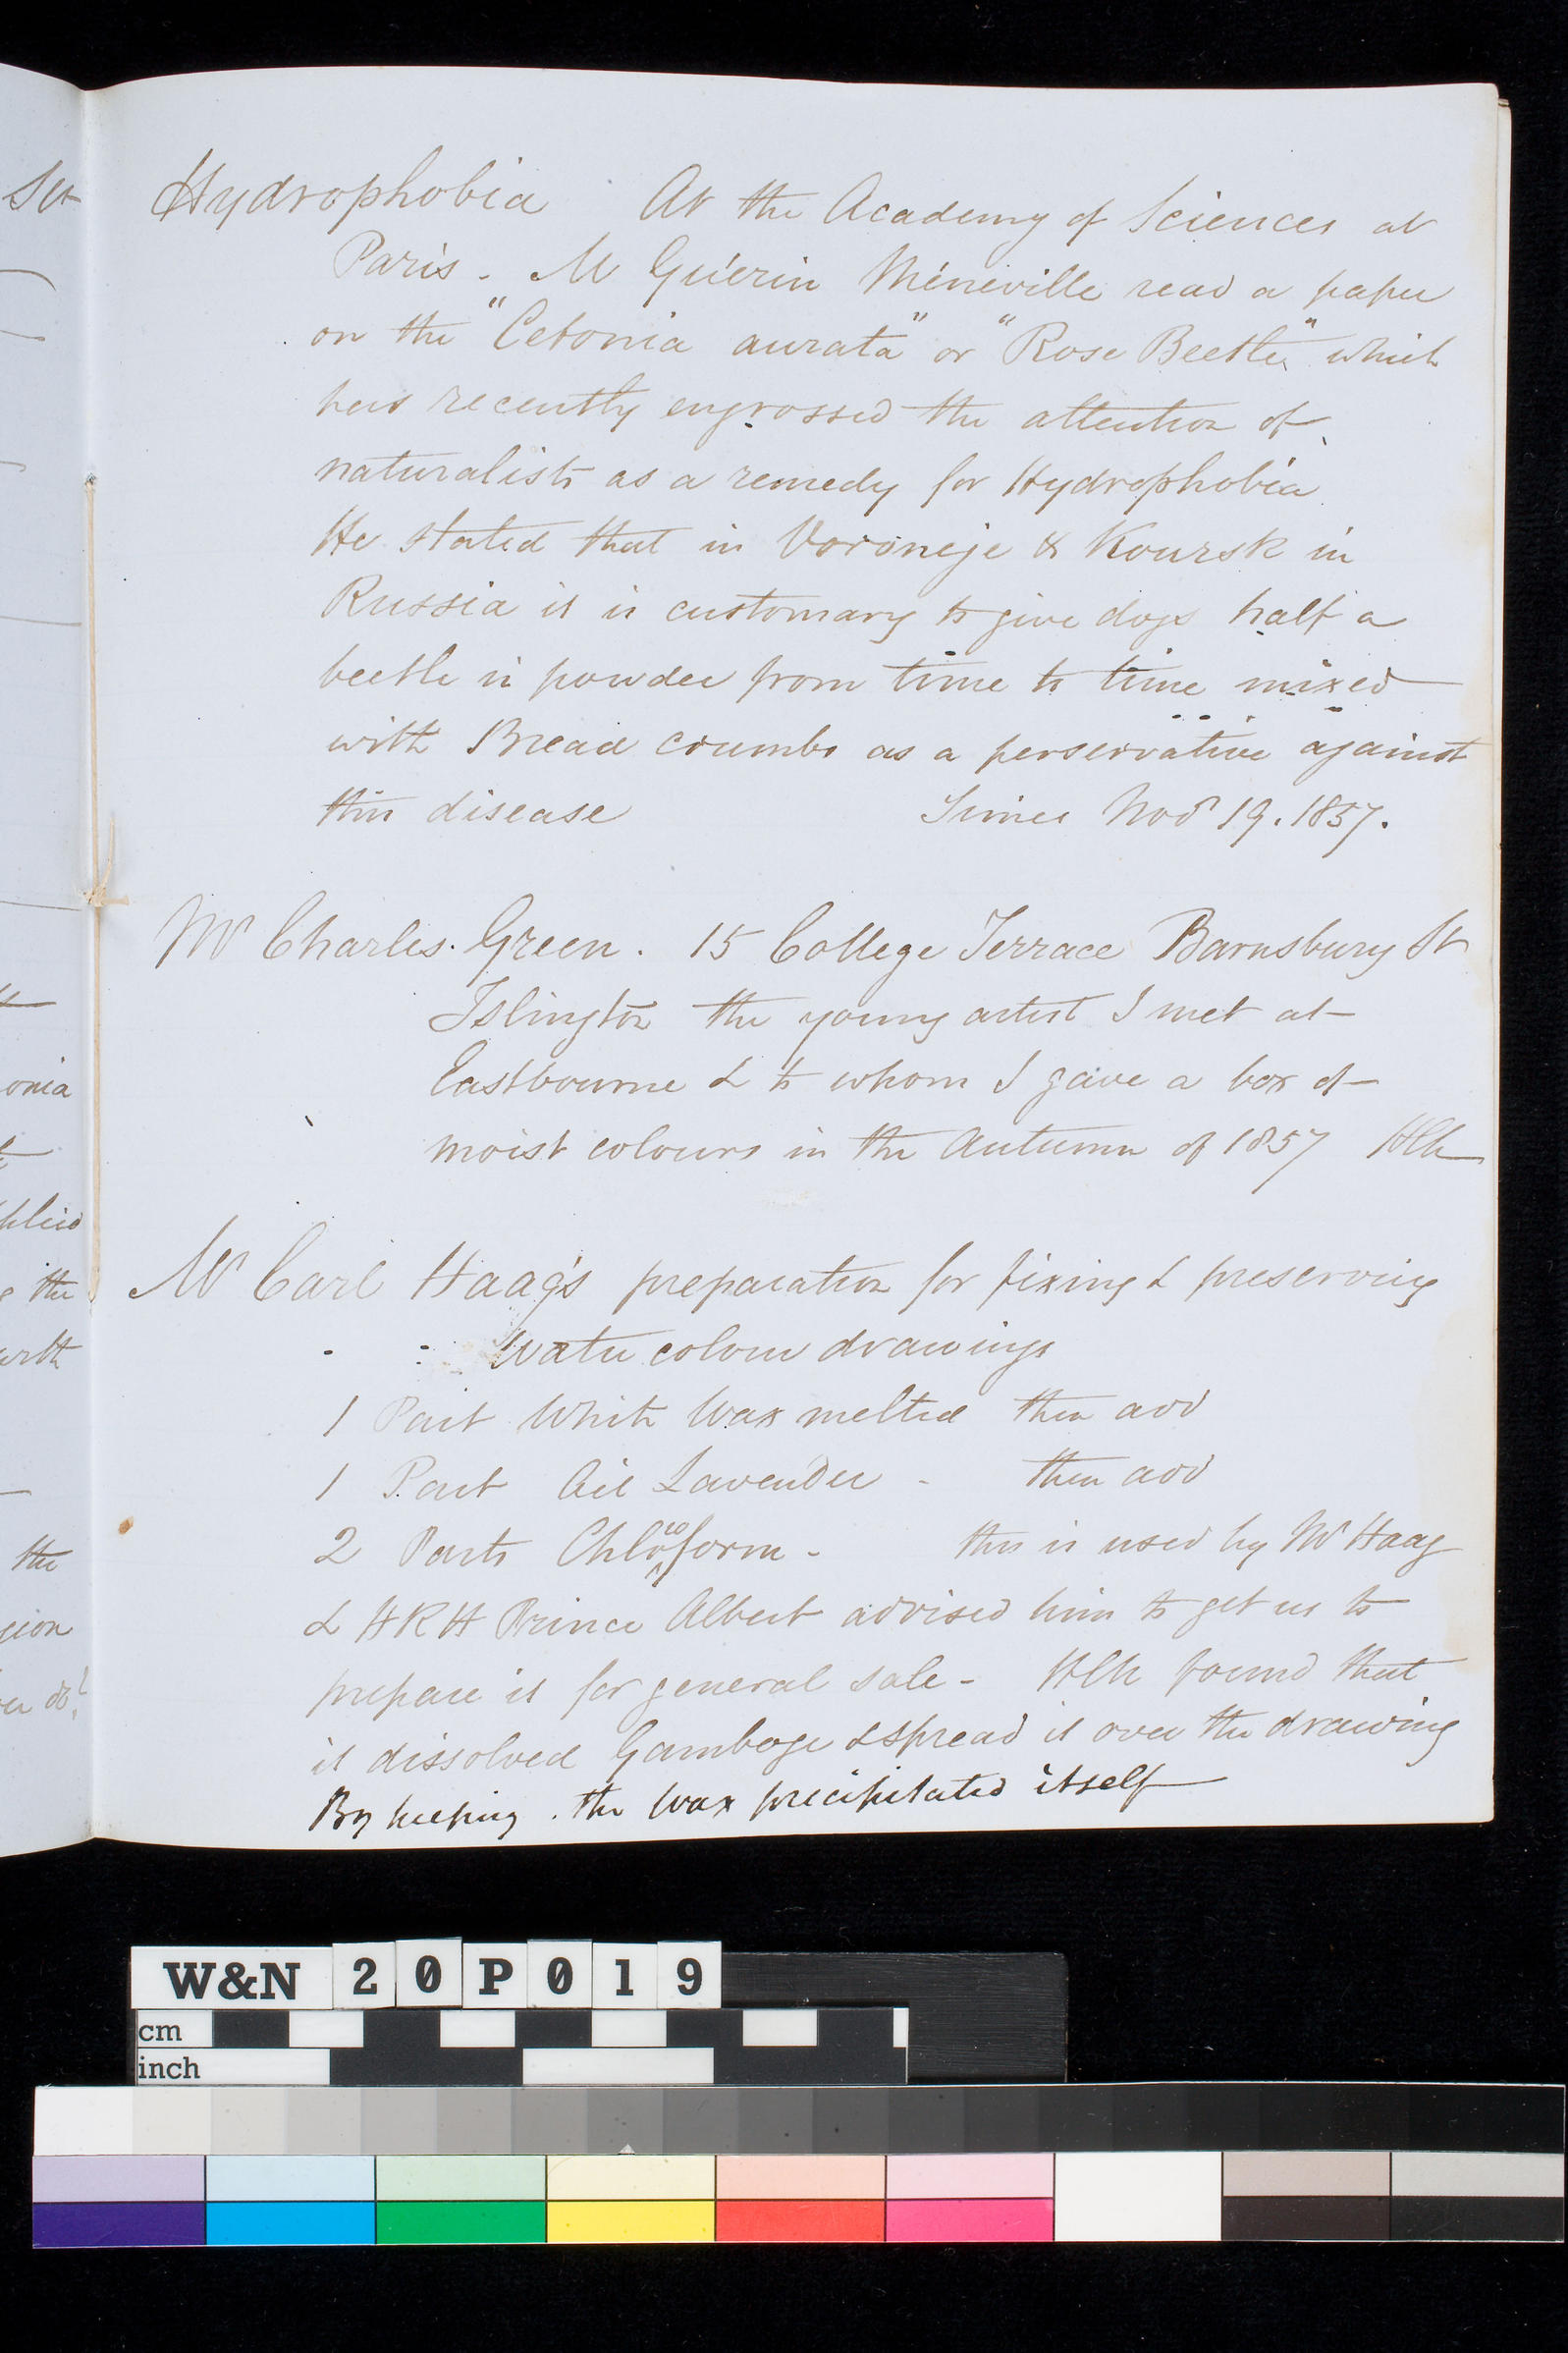 Hydrophobia At the Academy of Sciences at
Paris - M Guérin Méneville read a paper
on the "Cetonia aurata" or "Rose Beetle" which
has recently engrossed the attention of
naturalists as a remedy for Hydrophobia
He stated that in Voroneje & Koursk in
Russia it is customary to give dogs half a
beetle in powder from time to time mixed
with Bread crumbs as a perservative against
this disease Times Novr 19. 1857.
Mr Charles Green. 15 College Terrace Barnsbury St
Islington the young artist I met at
Eastbourne & to whom I gave a box of
moist colours in the Autumn of 1857 HCN
Mr Carl Haag's preparation for fixing & preserving
Water colour drawings
1 Part White Wax melted then add
1 Part Oil Lavender - then add
2 Parts Chloroform - this is used by Mr Haag
& HRH Prince Albert advised him to get us to
prepare it for general sale - HCN found that
it dissolved Gamboge & spread it over the drawing
By keeping the Wax precipitated itself
Set
onia
the
with
the
gion
W&N 20P019
cm
inch